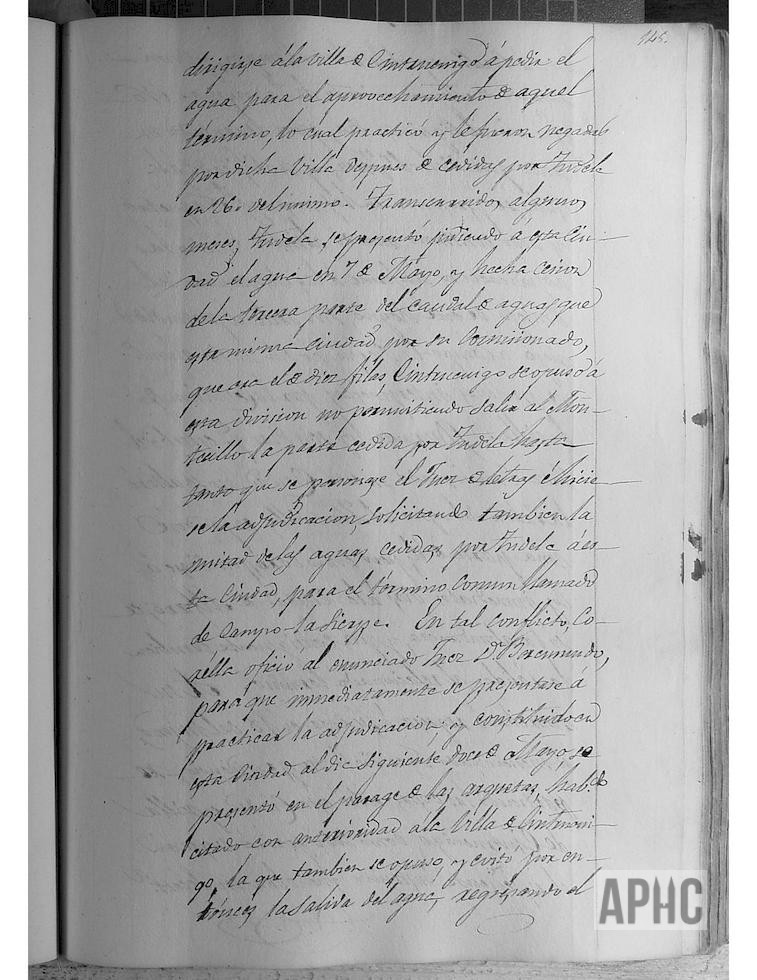 145.
dirigirse á la villa de Cintruenigo á pedir el
agua para el aprovechamiento de aquel
término, lo cual practicó y le fueron negadas
por dicha Villa despues de cedidas por Tudela
en 26. del mismo. Transcurridos algunos
meses, Tudela se presentó pidiendo á esta Ciu-
dad el agua en 7 de Mayo, y hecha cesion
de la tercera parte del caudal de aguas que
esta misma ciudad, por su Comisionado,
que era el de diez filas, Cintruenigo se opuso á
esta division no permitiendo salir al Mon-
tecillo la parte cedida por Tudela hasta
tanto que se personase el Juez de letras é hicie-
se la adjudicacion, solicitando tambien la
mitad de las aguas cedidas por Tudela á es-
ta Ciudad, para el término Comun llamado
de Campo-la Sierpe. En tal conflicto, Co-
rella ofició al enunciado Juez Dn. Baremundo,
para que inmediatamente se presentase á
practicar la adjudicacion, y constituido en
esta Ciudad al dia siguiente doce de Mayo, se
presentó en el parage de las arquetas, habdo.
citado con anterioridad á la Villa de Cintrueni-
go, la que tambien se opuso, y evitó por en-
tonces la salida del agua, regresando el
APHC